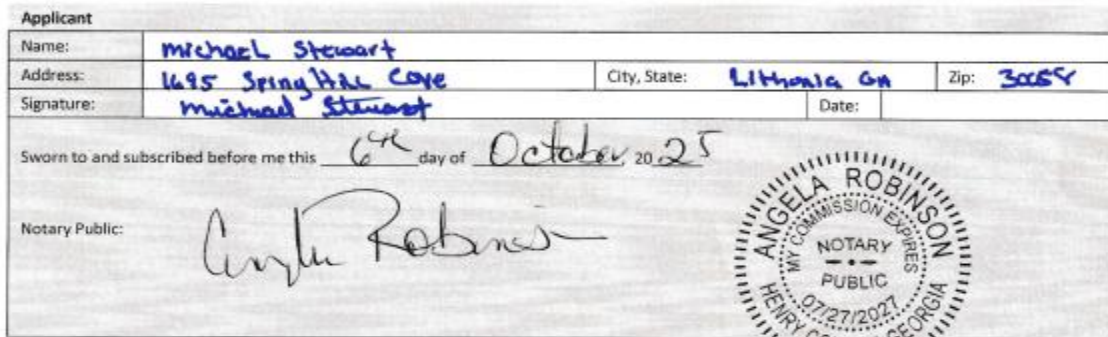 Applicant
Name: michael Stewart
Address: 1695 Spring Hill Cove City, State: Lithonia GA Zip: 30058
Signature: Michael Stewart Date:
Sworn to and subscribed before me this 6th day of October, 20 25
Notary Public: Angela Robinson
ANGELA ROBINSON
MY COMMISSION EXPIRES
NOTARY
PUBLIC
07/27/2027
HENRY COUNTY GEORGIA